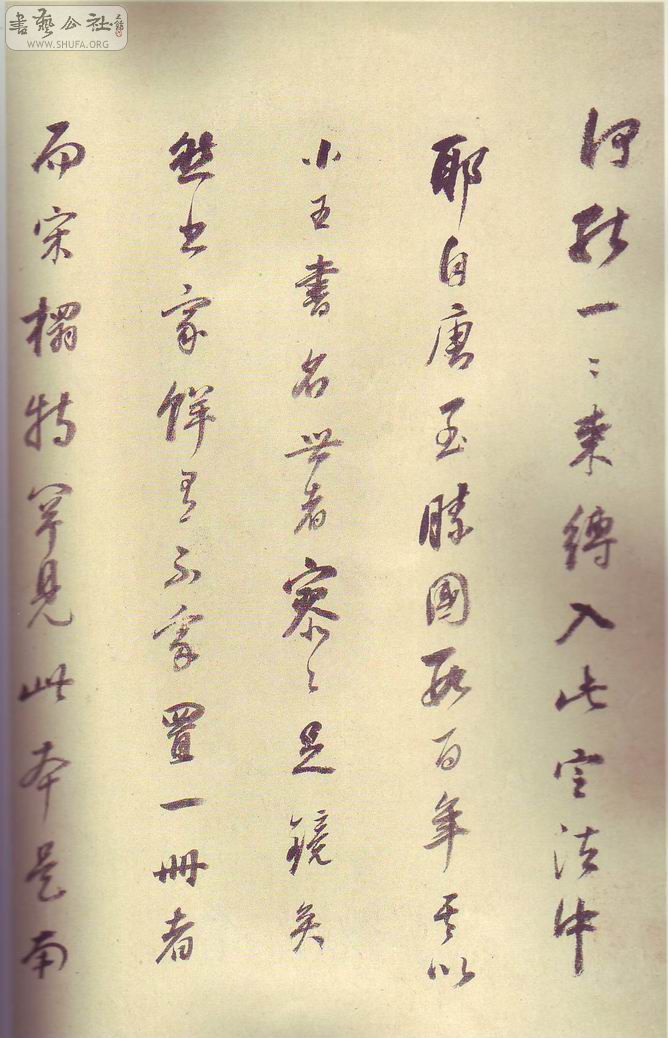 書藝公社
WWW.SHUFA.ORG
何能一〻束縛入此定法中
耶自唐至勝國數百年其以
小王書名世者寥〻足鏡矣
然書家鮮有不家置一冊者
而宋榻特罕見此本是南